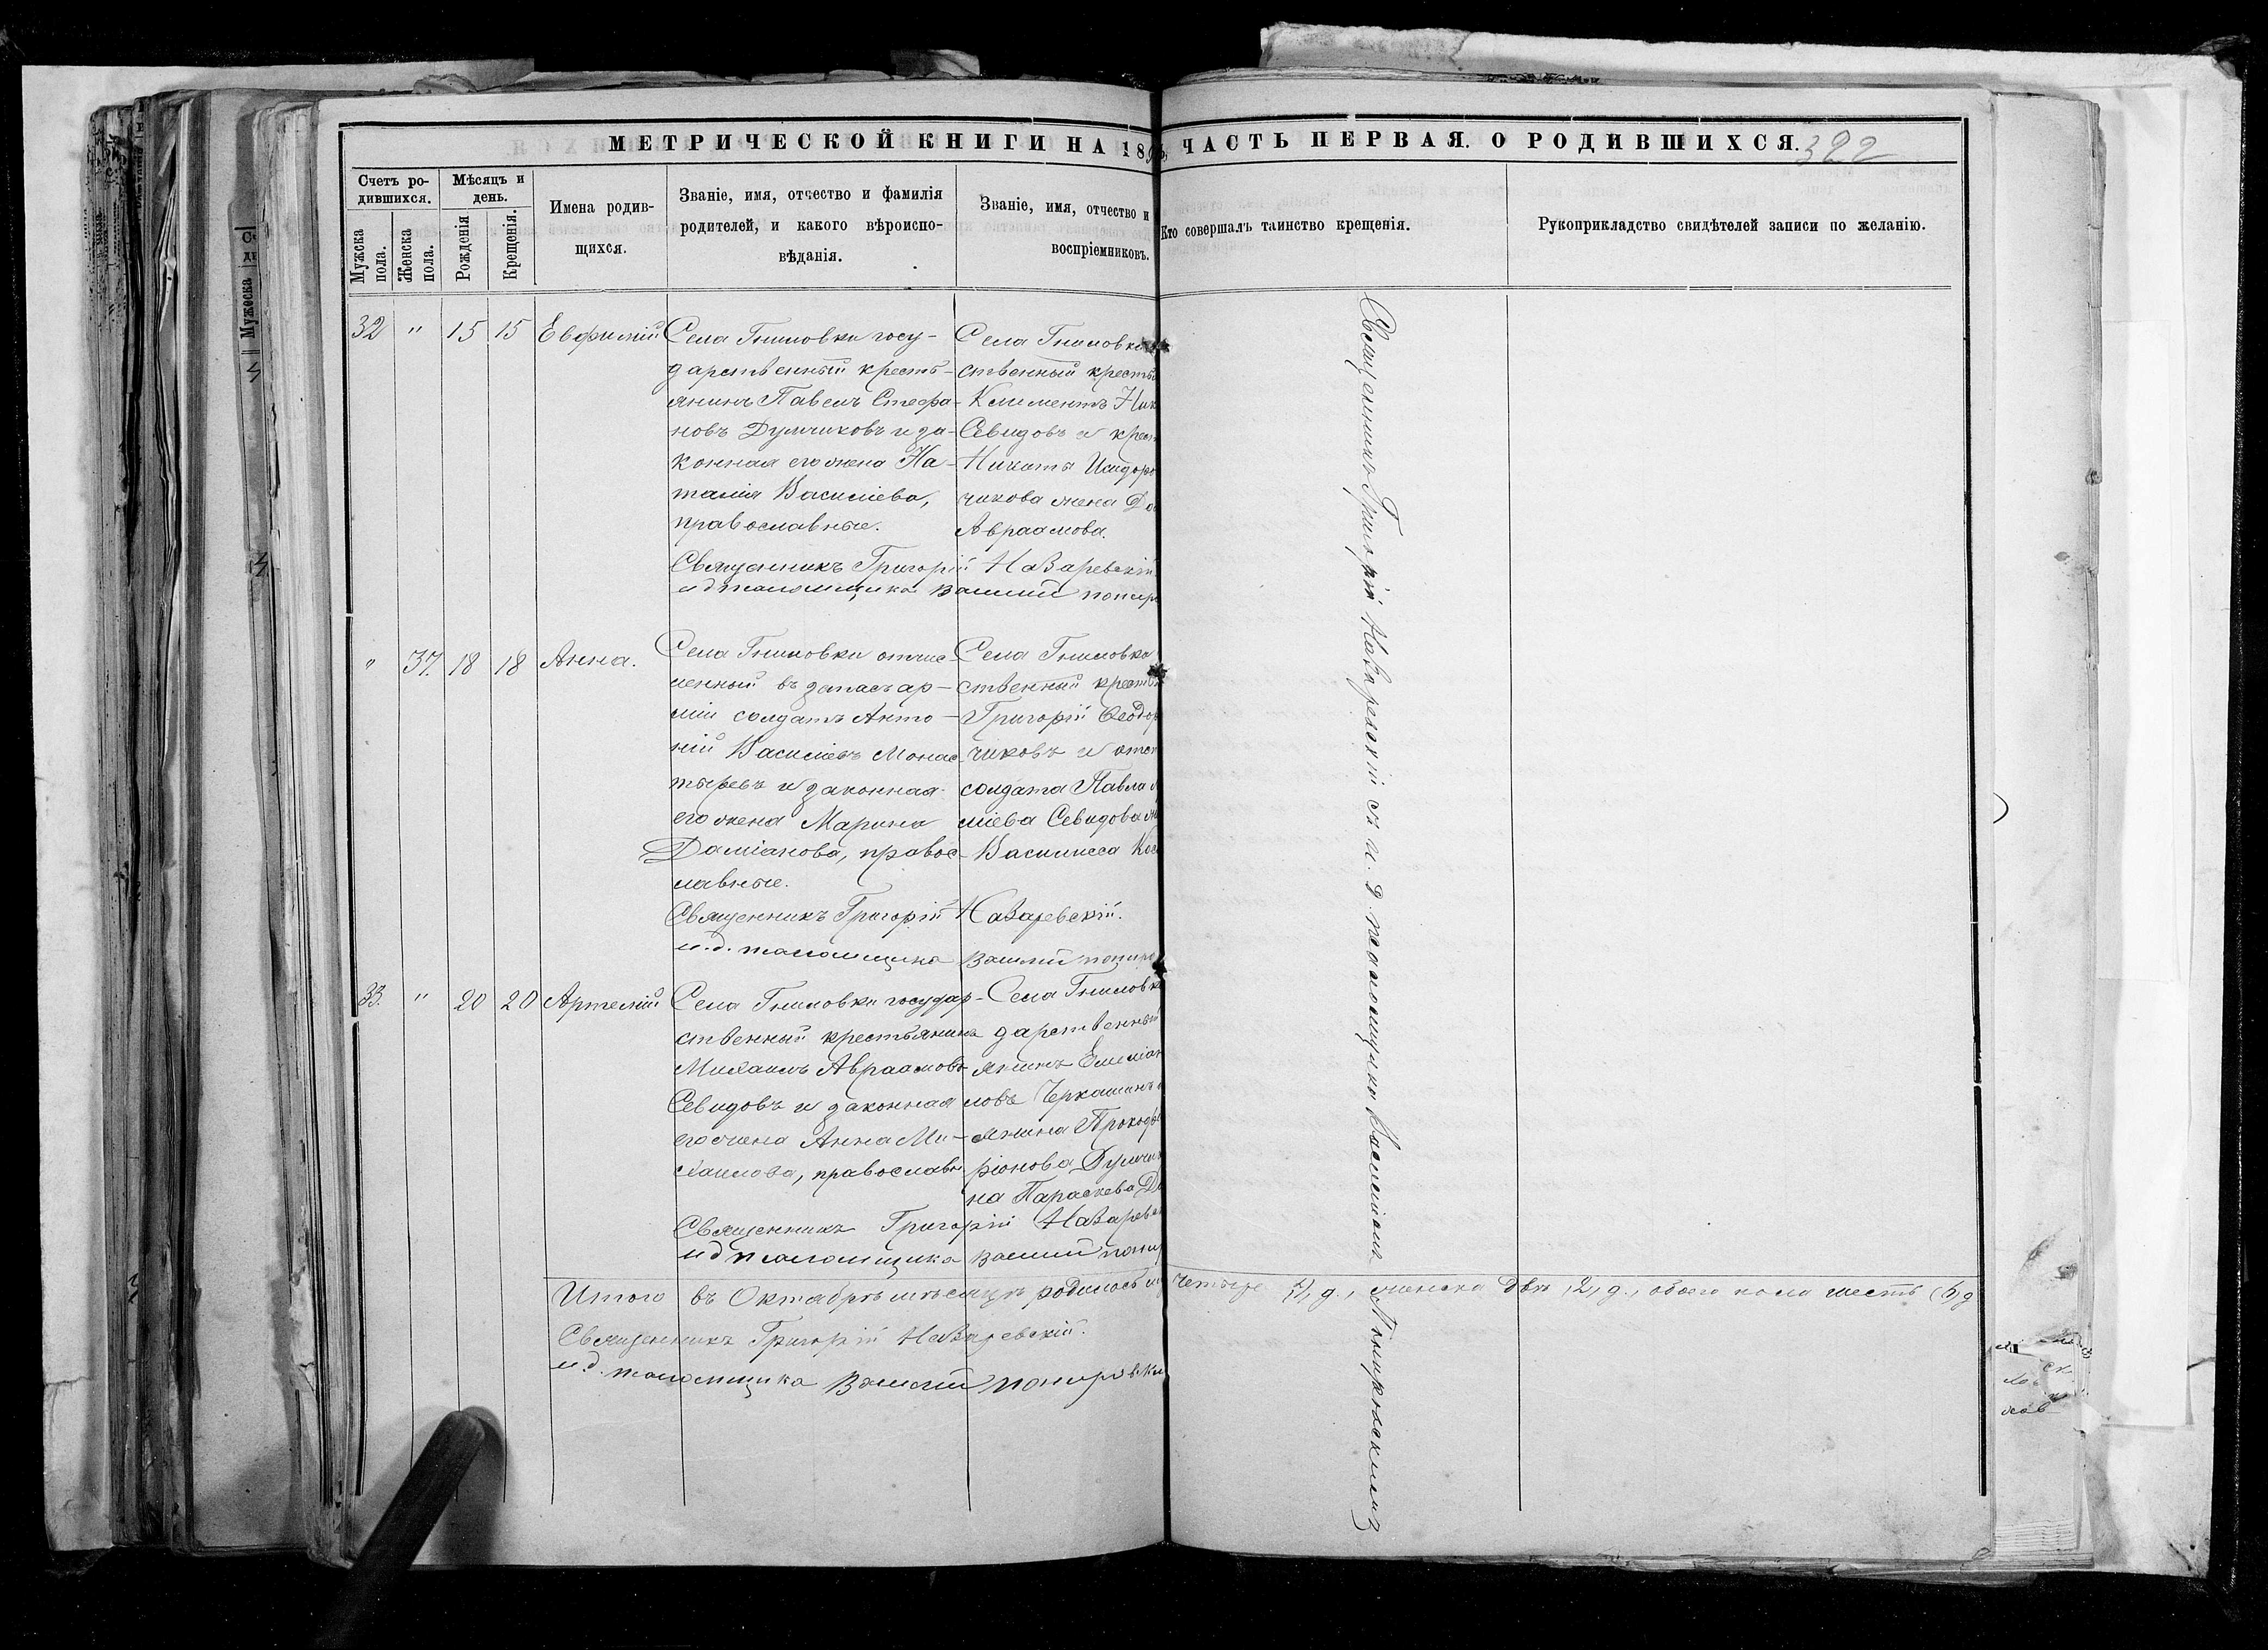 МЕТРИЧЕСКОЙ КНИГИ НА 189 ЧАСТЬ ПЕРВАЯ. О РОДИВШИХСЯ. 322
Счетъ ро-
дившихся.
Мужска
пола.
Женска
пола.
Мѣсяцъ и
день.
Рожденія
Крещенія.
Имена родив-
щихся.
Званіе, имя, отчество и фамилія
родителей, и какого вѣроиспо-
вѣданія.
Званіе, имя, отчество и
воспріемниковъ.
Кто совершалъ таинство крещенія.
Рукоприкладство свидѣтелей записи по желанію.
32 " 15 15 Евфимій
Села Гниловки госу-
дарственный кресть-
янинъ Павелъ Стефа-
новъ Думчиковъ и за-
конная его жена На-
талия Василіева,
православные.
Села Гниловки
ственный кресть
Климентъ Ник
Севидовъ и крест
Никиты Исидоро
чикова жена До
Авраамова.
Священникъ Григорій Назаревскій
и д псаломщика Василий
" 37. 18 18 Анна.
Села Гниловки отчис-
ленный въ запасъ ар-
міи солдатъ Анто-
ній Василіевъ Монас-
тыревъ и законная
его жена Марина
Даміанова, правос-
лавные.
Села Гниловки
ственный крестья
Григорій Ѳеодор
чиковъ и отст
солдата Павла
ліева Севидова
Василисса Кос
Священникъ Григорій Назаревскій.
и.д. псаломщика Василий
33. " 20 20 Артемій
Села Гниловки государ-
ственный крестьянинъ
Михаилъ Авраамовъ
Севидовъ и законная
его жена Анна Ми-
хаилова, православн.
Села Гниловк
дарственный
янинъ Емеліан
ловъ Черкашинъ
янина Прокоф
ріонова Думчи
на Параскева Д
Священникъ Григорій Назарев
и д псаломщика Василий
Итого въ Октябрѣ мѣсяцѣ родилось м четыре 4, д., женска двѣ, 2, д., обоего пола шесть (6, д
Священникъ Григорій Назаревскій.
и.д. псаломщика Василий
Священникъ Григорій Назаревскій съ и. д. псаломщика Василіемъ